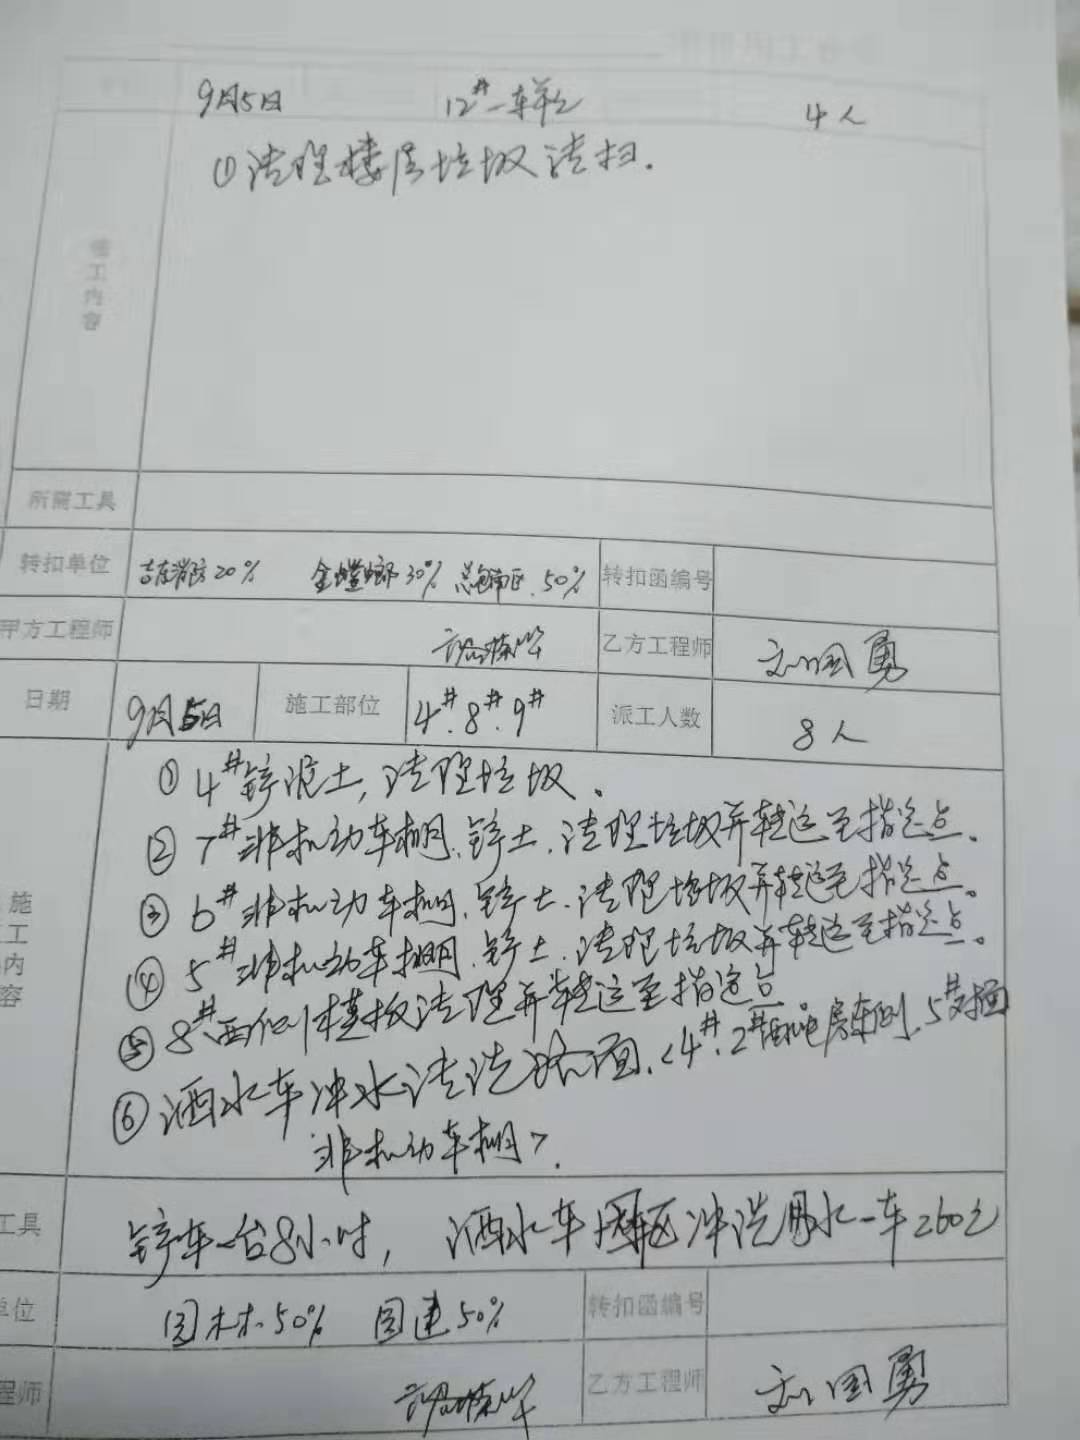 9月5日 12# 一单元 4人
①清理楼层垃圾清扫.
施工内容
所需工具
转扣单位 吉庄消防20% 金螳螂30% 总包南区.50% 转扣函编号
甲方工程师 乙方工程师 刘国勇
日期 9月5日 施工部位 4#.8#.9# 派工人数 8人
①4#铲泥土,清理垃圾。
②7#非机动车棚.铲土.清理垃圾并转运至指定点。
③6#非机动车棚.铲土.清理垃圾并转运至指定点。
④5#非机动车棚.铲土.清理垃圾并转运至指定点。
⑤8#西侧模板清理并转运至指定点
⑥洒水车冲水清洗路面.<4#.2#配电房东侧.5#对面
非机动车棚>.
施工内容
工具 铲车一台8小时, 洒水车 冲洗用水一车260元
单位 园林.50% 园建50% 转扣函编号
程师 乙方工程师 刘国勇